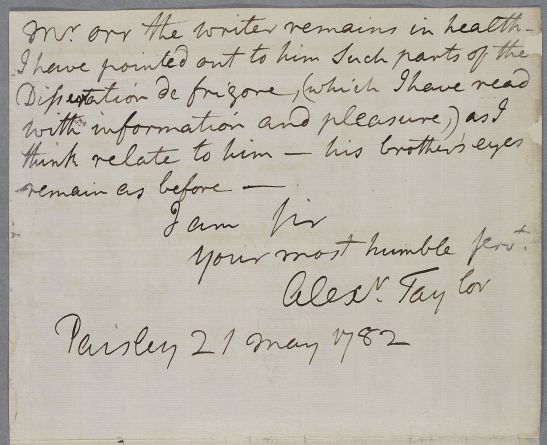 Mr. Orr the writer remains in health -
I have pointed out to him Such parts of the
Dissertation de frigore, (which I have read
with information and pleasure,) as I
think relate to him — his brother's eyes
remain as before —
I am Sir
Your most humble servt.
Alexr. Taylor
Paisley 21 May 1782